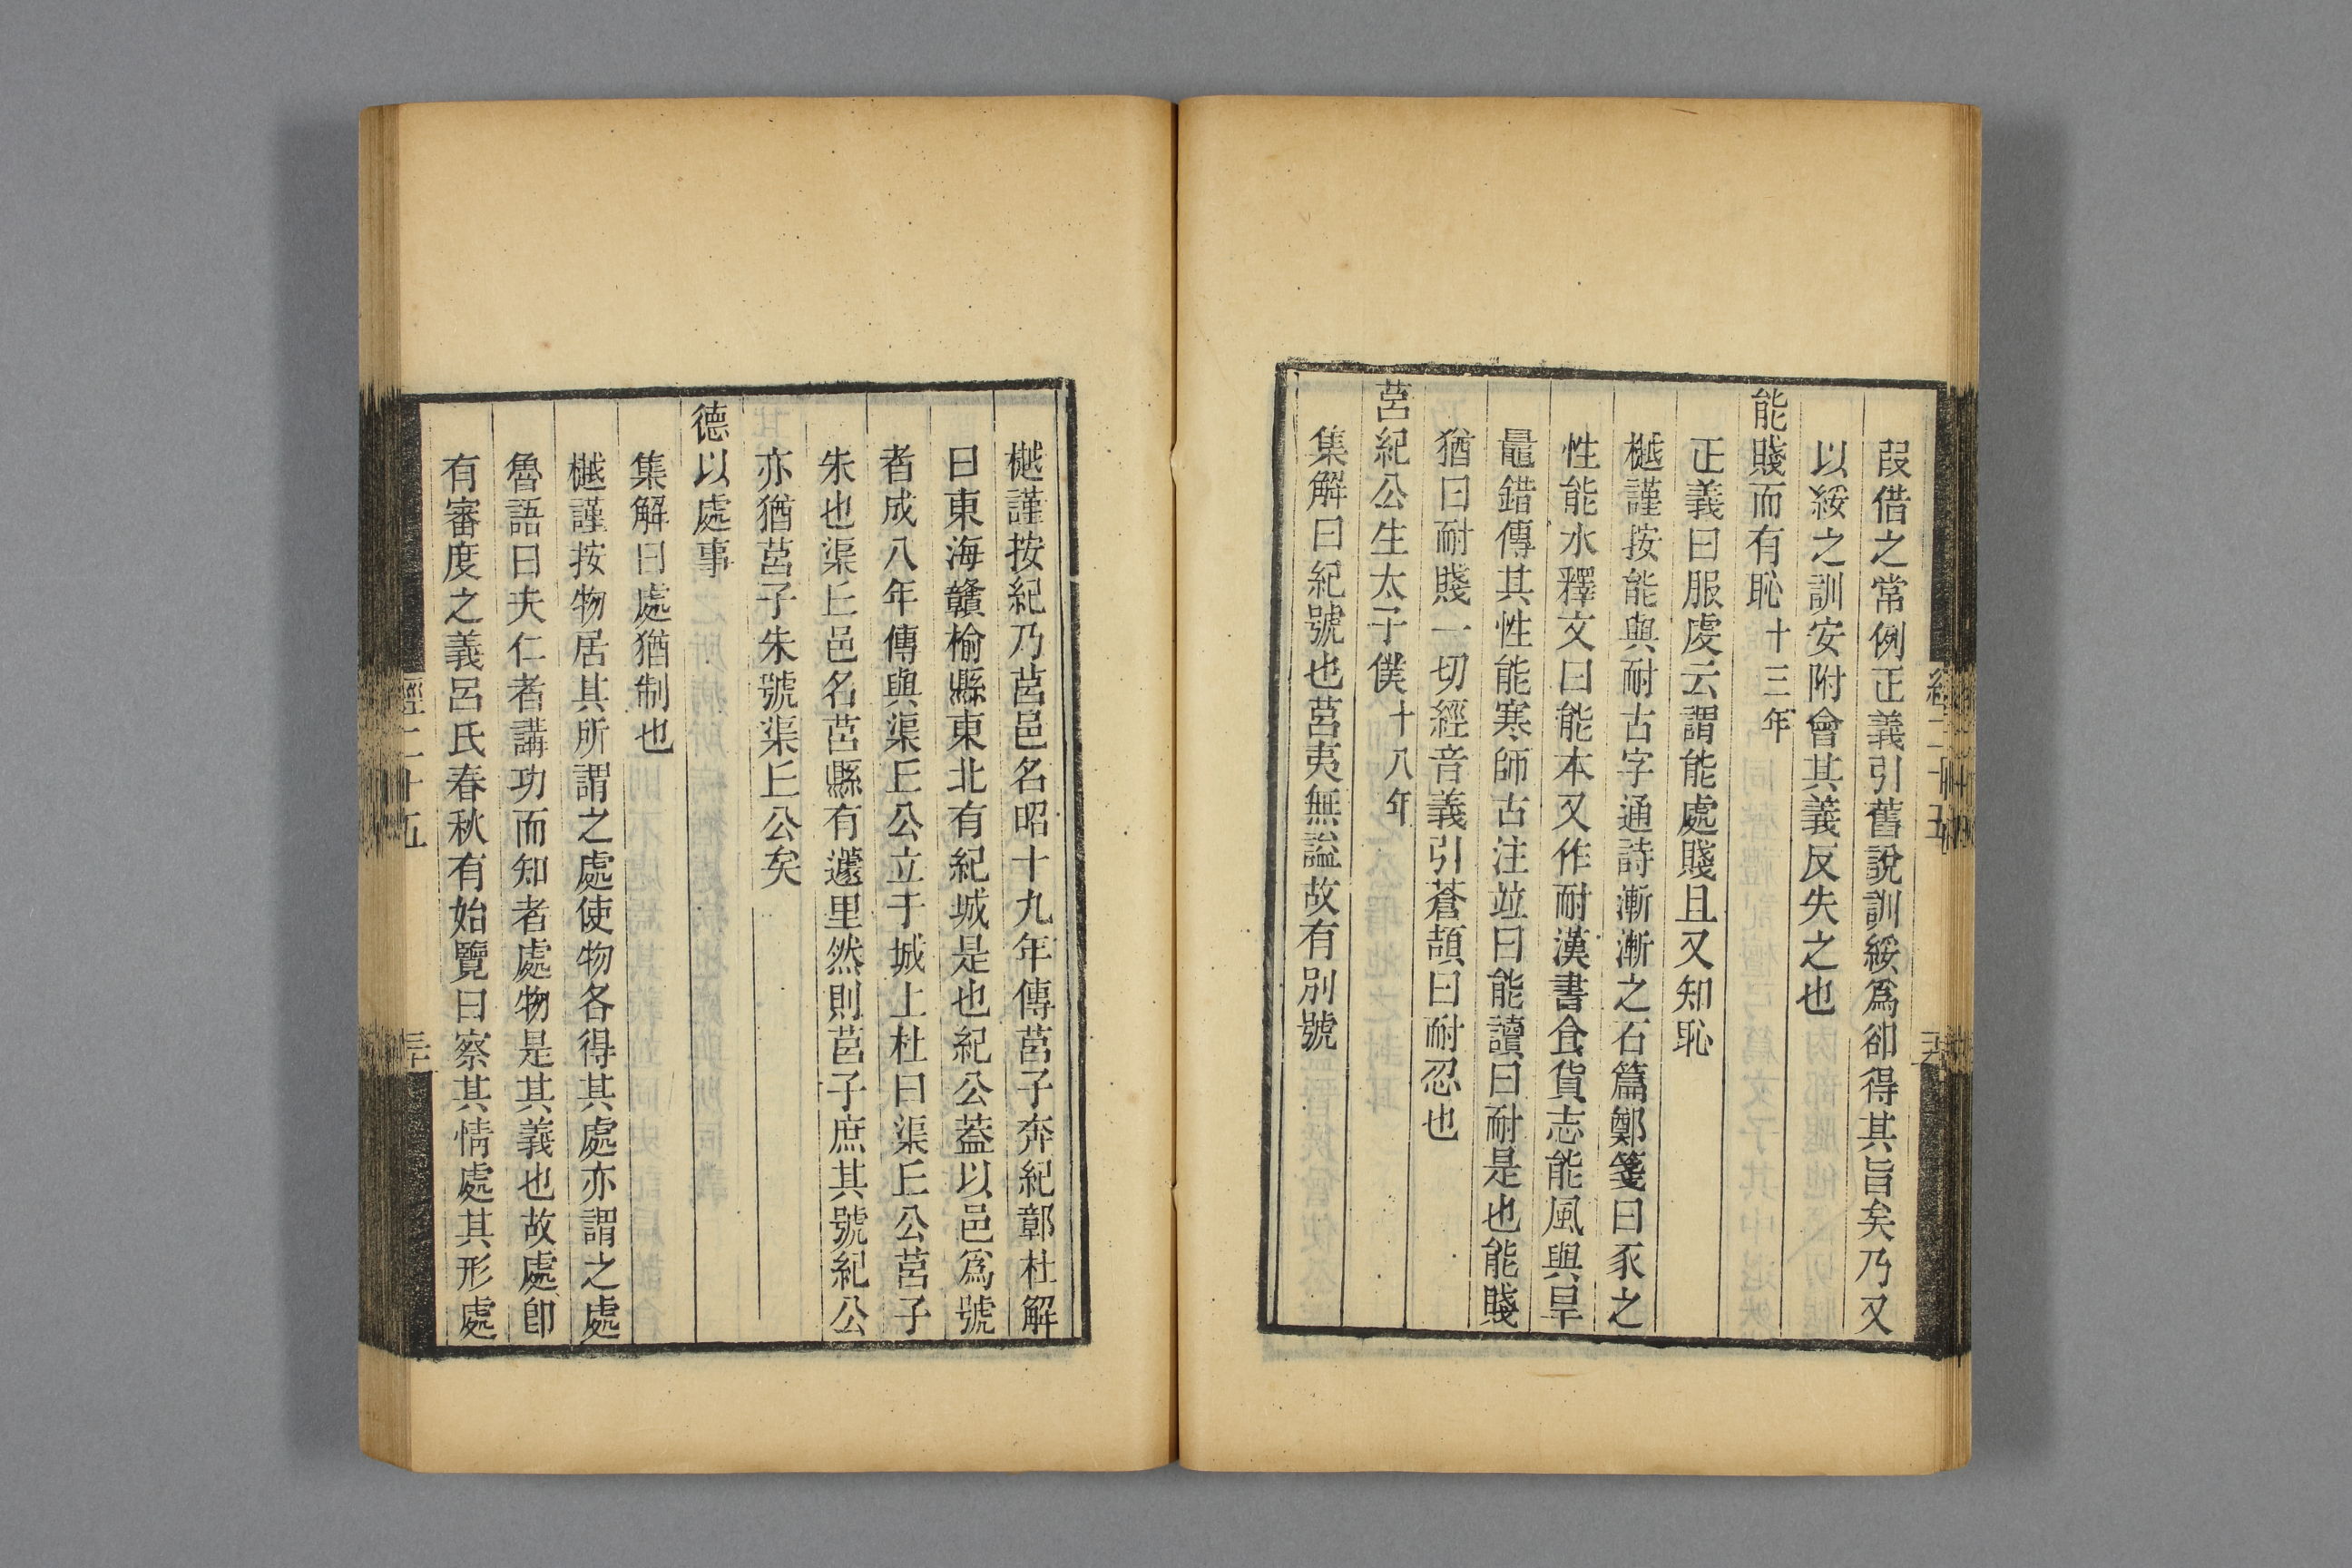 叚借之常例正義引舊說訓綏爲卻得其旨矣乃又
以綏之訓安附會其義反失之也
能賤而有恥十三年
正義曰服虔云謂能處賤且又知恥
樾謹按能與耐古字通詩漸漸之石篇鄭箋曰豕之
性能水釋文曰能本又作耐漢書食貨志能風與旱
鼂錯傳其性能寒師古注竝曰能讀曰耐是也能賤
猶曰耐賤一切經音義引蒼頡曰耐忍也
莒紀公生太子僕十八年
集解曰紀號也莒夷無謚故有別號
樾謹按紀乃莒邑名昭十九年傳莒子奔紀鄣杜解
曰東海贛榆縣東北有紀城是也紀公葢以邑爲號
者成八年傳與渠丘公立于城上杜曰渠丘公莒子
朱也渠丘邑名莒縣有蘧里然則莒子庶其號紀公
亦猶莒子朱號渠丘公矣
德以處事
集解曰處猶制也
樾謹按物居其所謂之處使物各得其處亦謂之處
魯語曰夫仁者講功而知者處物是其義也故處卽
有審度之義呂氏春秋有始覽曰察其情處其形處
經二十五